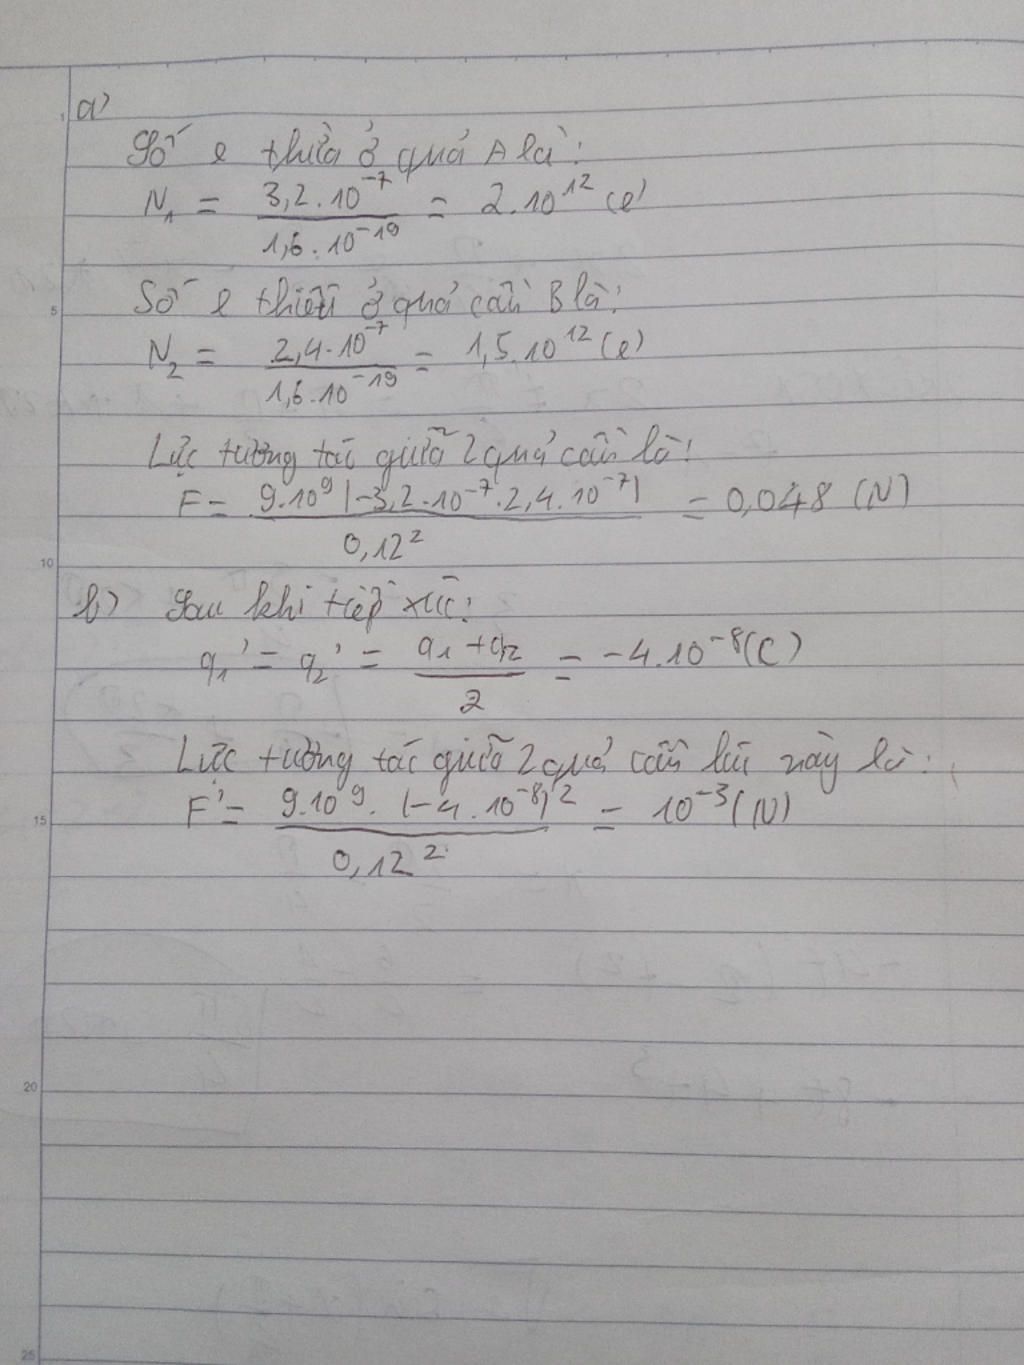 a)
Số e thừa ở quả A là:
N₁ = 3,2.10⁻⁷ / 1,6.10⁻¹⁹ = 2.10¹² (e)
Số e thiếu ở quả cầu B là:
5
N₂ = 2,4.10⁻⁷ / 1,6.10⁻¹⁹ = 1,5.10¹² (e)
Lực tương tác giữa 2 quả cầu là:
F = 9.10⁹ |-3,2.10⁻⁷.2,4.10⁻⁷| / 0,12² = 0,048 (N)
10
b) Sau khi tiếp xúc:
q₁' = q₂' = q₁ + q₂ / 2 = -4.10⁻⁸ (C)
Lực tương tác giữa 2 quả cầu lúc này là:
15
F' = 9.10⁹. (-4.10⁻⁸)² / 0,12² = 10⁻³ (N)
20
25